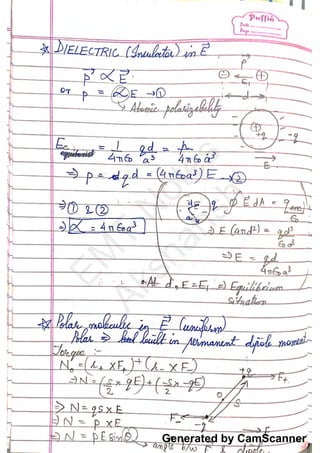 Puffin
Date
Page
* DIELECTRIC (Insulator) in E⃗
p⃗ ∝ E⃗
or p = αE →①
→ Atomic polarizability
p⃗
⊖ ← E₁ ⊕
← d →
+q
-q
E →
E = 1/4πε₀ qd/a³ = p/4πε₀a³
⇒ p = qd = (4πε₀a³) E →②
⇒ ① & ②
⇒ α = 4πε₀a³
∮ E⃗ dA = q enc/ε₀
⇒ E (4πd²) = qd³/ε₀a³
⇒ E = qd/4πε₀a³
• At d, E = E₁ ⇒ Equilibrium
situation
* Polar molecule in E⃗ (uniform)
Polar ⇒ built in permanent dipole moment
Torque :-
N₀ = (r₊ × F₊) + (r₋ × F₋)
⇒ N = (s/2 × qE) + (-s/2 × -qE)
⇒ N = qs × E
⇒ N = p × E
⇒ N = pE sin θ
→ angle b/w E & dipole
+q
F₊
O
S
F₋
-q
EMT Notes
Generated by CamScanner